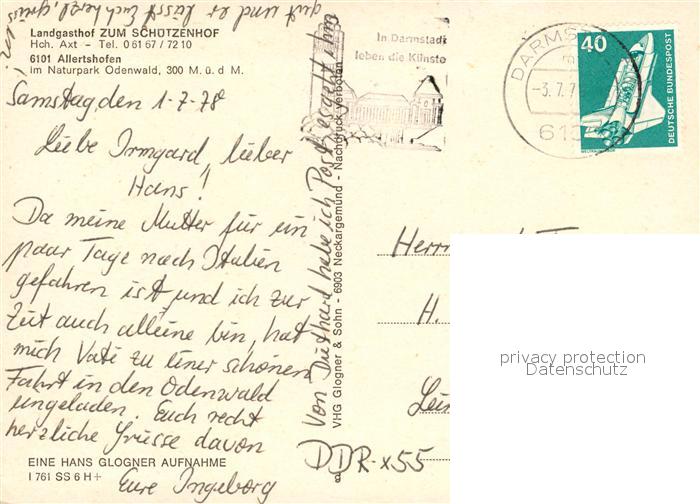 Landgasthof ZUM SCHÜTZENHOF
Hch. Axt - Tel. 0 61 67 / 72 10
6101 Allertshofen
im Naturpark Odenwald, 300 M. ü. d M.
Samstag, den 1-7-78
Liebe Irmgard, lieber
Hans!
Da meine Mutter für ein
paar Tage nach Italien
gefahren ist, und ich zur
Zeit auch alleine bin, hat
mich Vati zu einer schönen
Fahrt in den Odenwald
eingeladen. Euch recht
herzliche Grüsse davon
Eure Ingeborg
EINE HANS GLOGNER AUFNAHME
I 761 SS 6 H+
Von Duthard habe ich Post, es geht ihm
gut und er lässt Euch herzl. grüs
sen!
VHG Glogner & Sohn - 6903 Neckargemünd - Nachdruck verboten
In Darmstadt
leben die Künste
DARMS
-3.7.7
61
40
DEUTSCHE BUNDESPOST
Herrn
H.
Lün
DDR-x55
privacy protection
Datenschutz